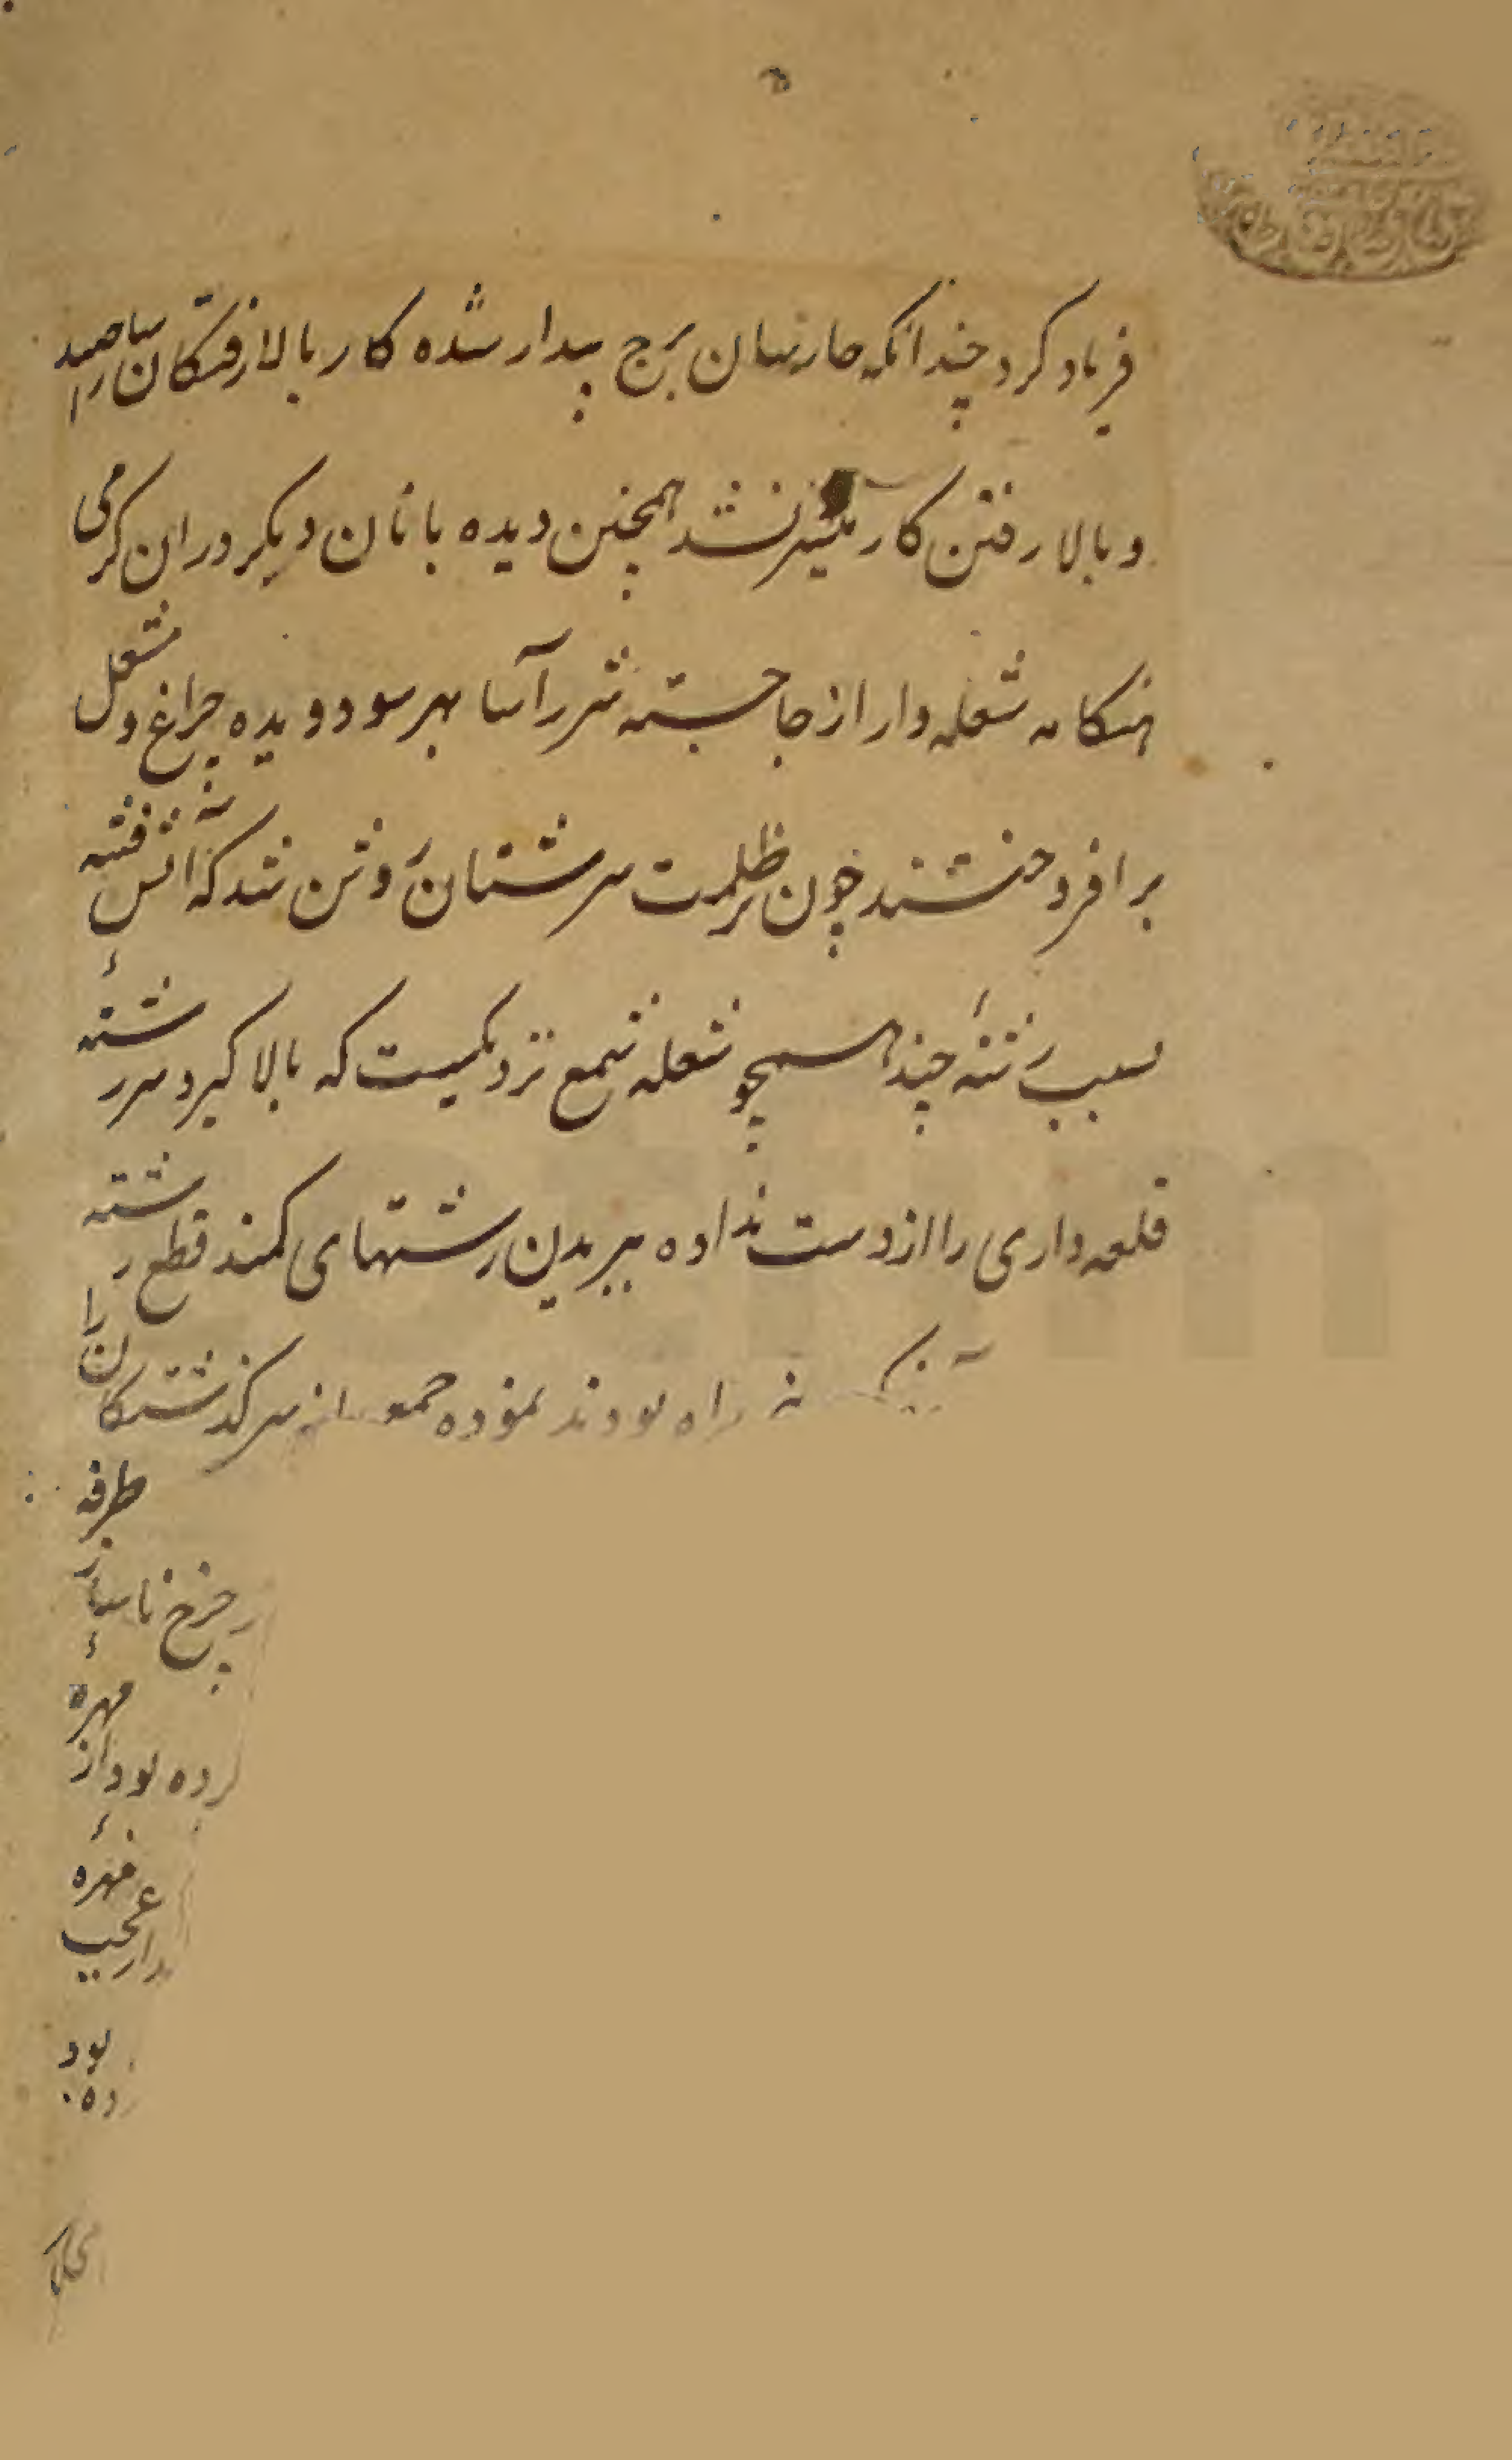 فریاد کرد چندانکه حارسان برج بیدار شده کار ببالا رفتگان
و بالا رفتن کار میسر نشد همچنین دیده بانان دیکر دران کرمی
هنکامه شعله وار از جا جسته شرر آسا بهر سو دویده چراغ و مشعل
بر افروختند چون بر ظلمت سرشتان روشن شد که آتش فتنه
بسبب رشتۀ چند همچو شعله شمع نزدیکست که بالا کیرد سر رشتۀ
قلعه داری را از دست نداده ببریدن رشتهای کمند قطع رشته
راه بودند نموده سر کذشتکان را
طرفه
چرخ ناساز
مهرۀ
بود از
مهرۀ
عجیب
بود